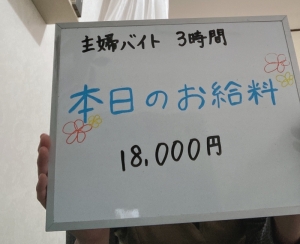 主婦バイト 3時間
本日のお給料
18,000円